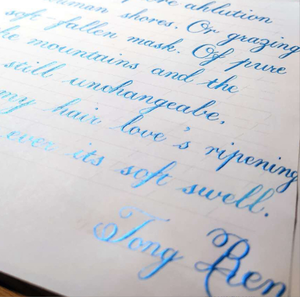 ablution
human shores. Or gazing
soft-fallen mask. Of pure
mountains and the
still unchangeabe.
my hair love's ripening
ever its soft swell.
Tong Ren